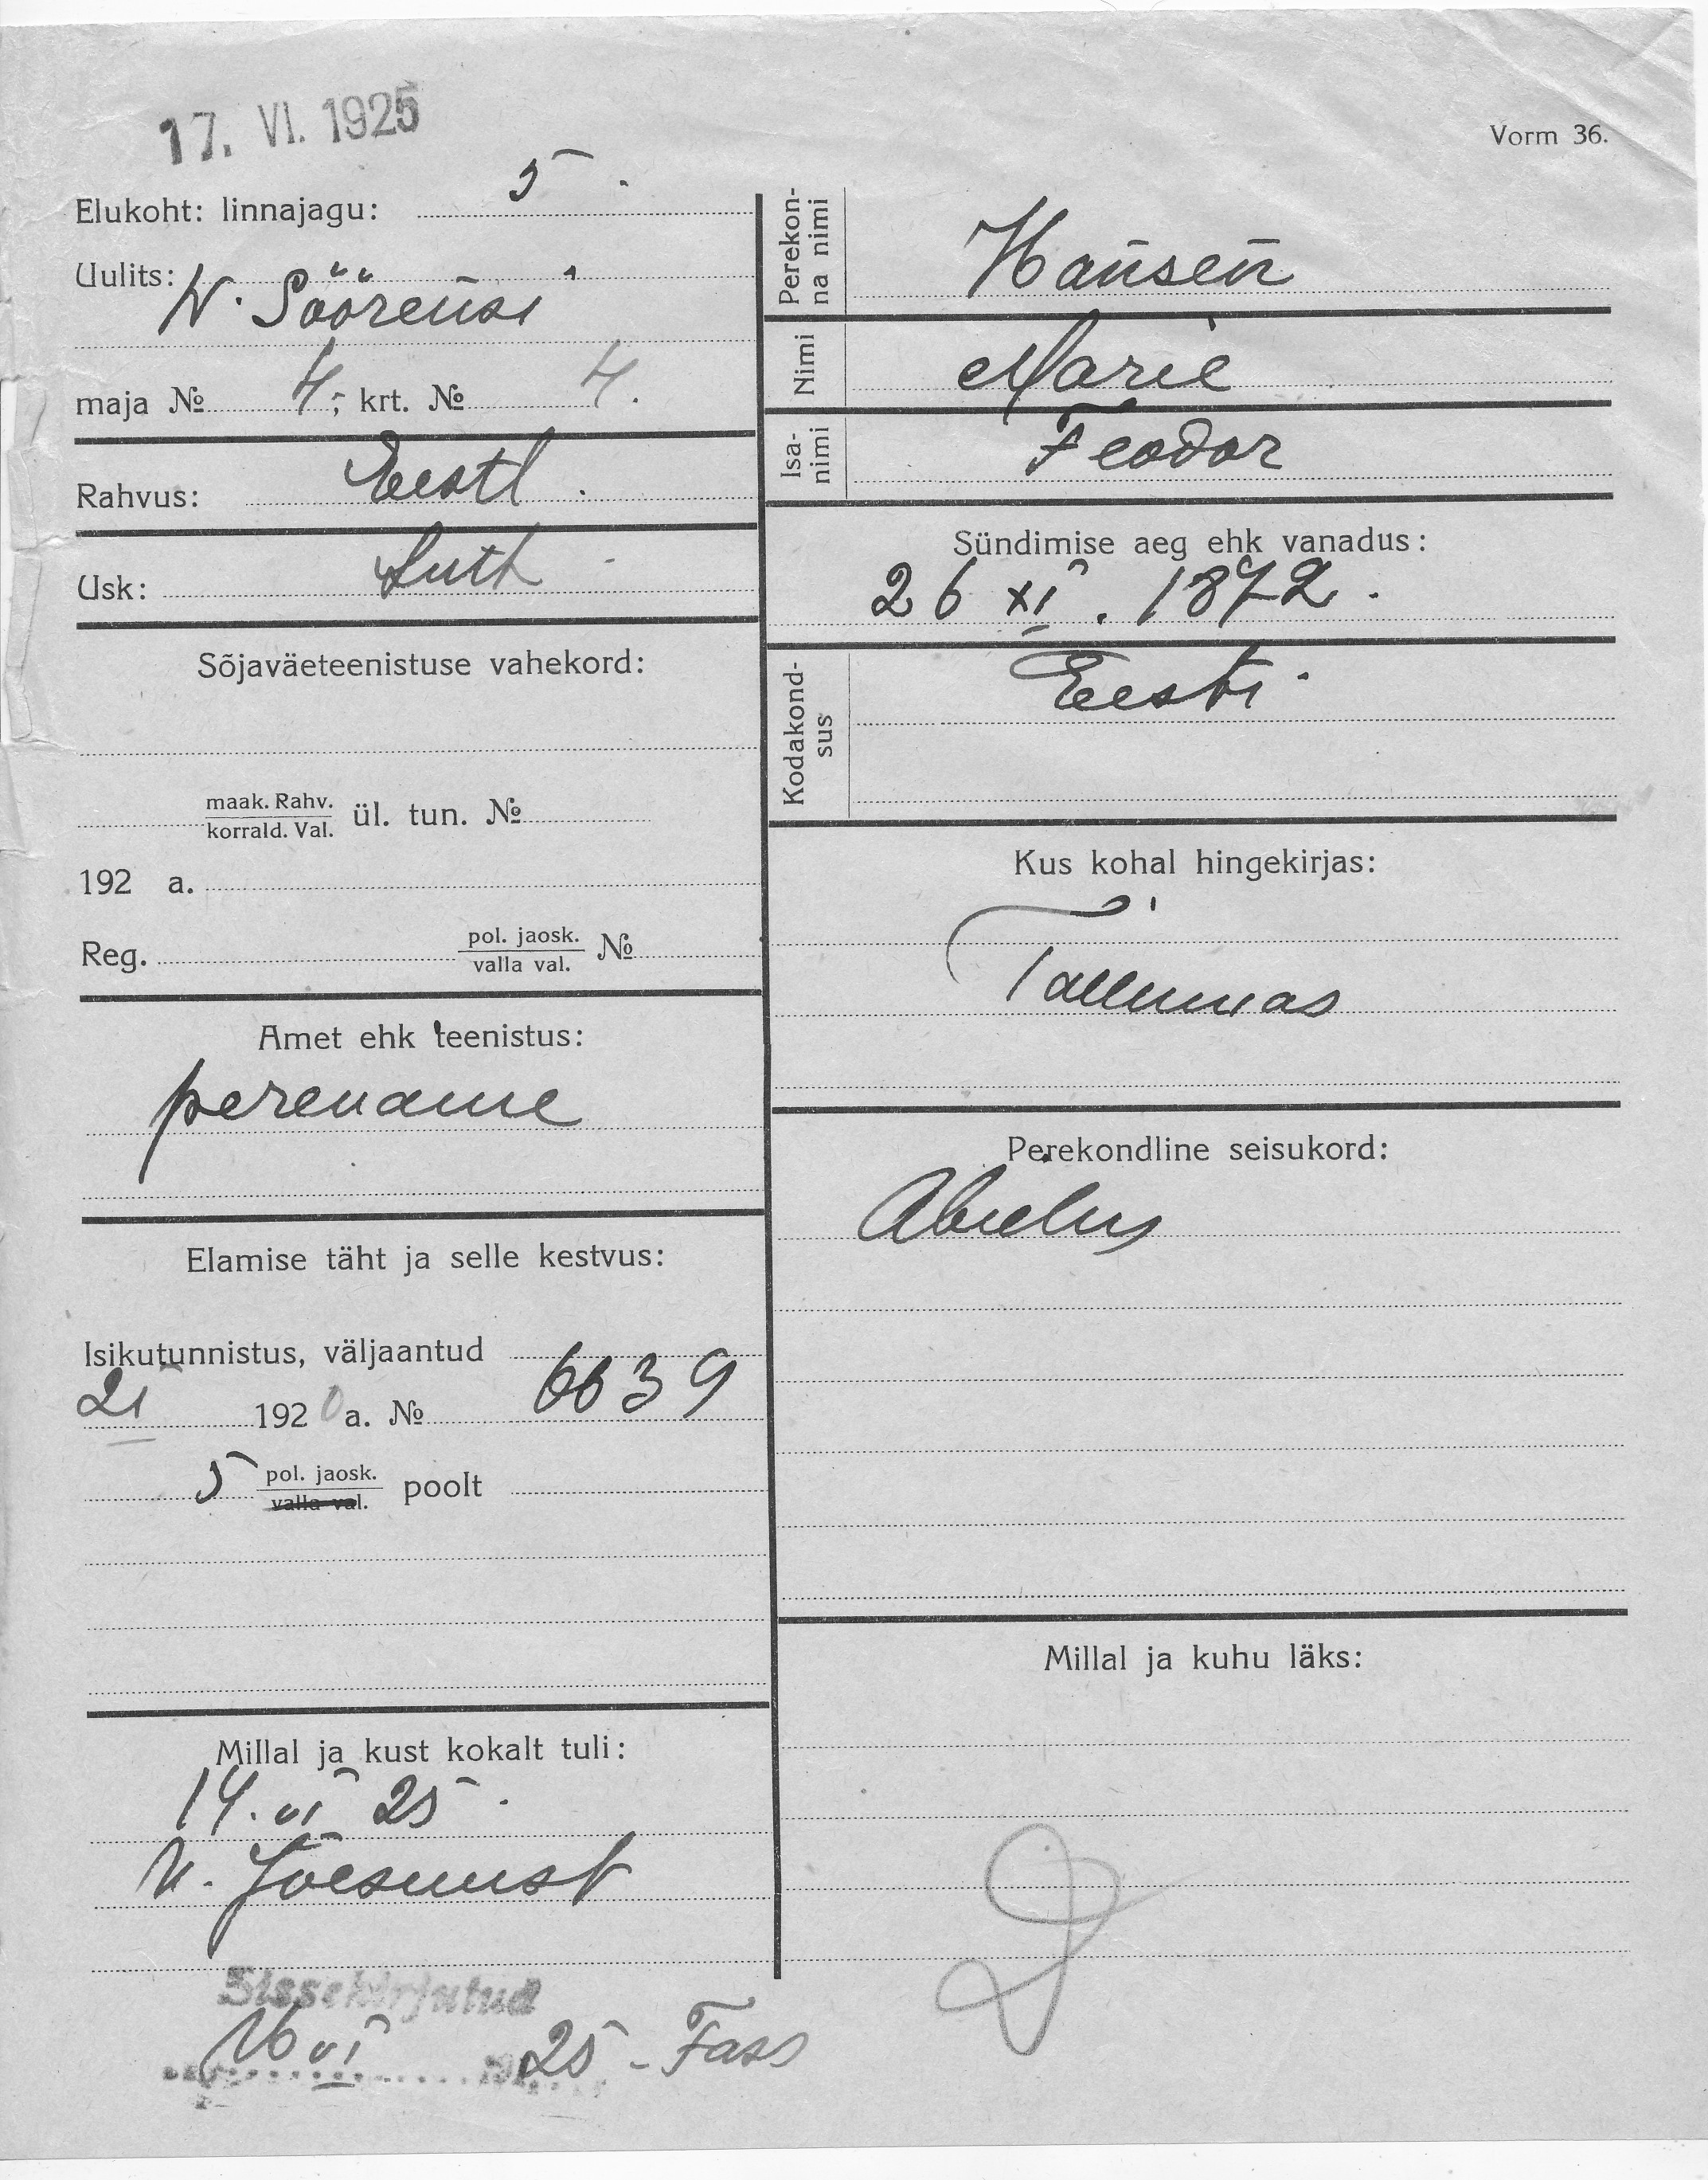 17. VI. 1925
Vorm 36.
Elukoht: linnajagu: 5.
Uulits:
W. Sööreusi
maja № 4; krt. № 4.
Rahvus: Eestl.
Usk: Luth
Sõjaväeteenistuse vahekord:
maak. Rahv.
korrald. Val. ül. tun. №
192 a.
Reg. pol. jaosk.
valla val. №
Amet ehk teenistus:
perenaine
Elamise täht ja selle kestvus:
Isikutunnistus, väljaantud
21 1920 a. № 6639
5 pol. jaosk.
valla val. poolt
Millal ja kust kokalt tuli:
14. VI 25.
N. Jõesuust
Sissekirjutud
16 VI 1925 - Fass
Perekon-
na nimi Hansen
Nimi Marie
Isa-
nimi Feodor
Sündimise aeg ehk vanadus:
26 XI. 1872.
Kodakond-
sus Eesti.
Kus kohal hingekirjas:
Tallinnas
Perekondline seisukord:
Abielus
Millal ja kuhu läks: